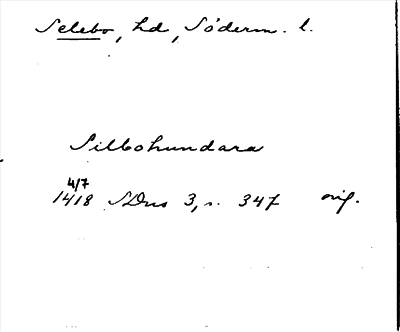 Selebo, hd, Söderm. l.
Silbohundara
4/7
1418 SDns 3, s. 347 orig.